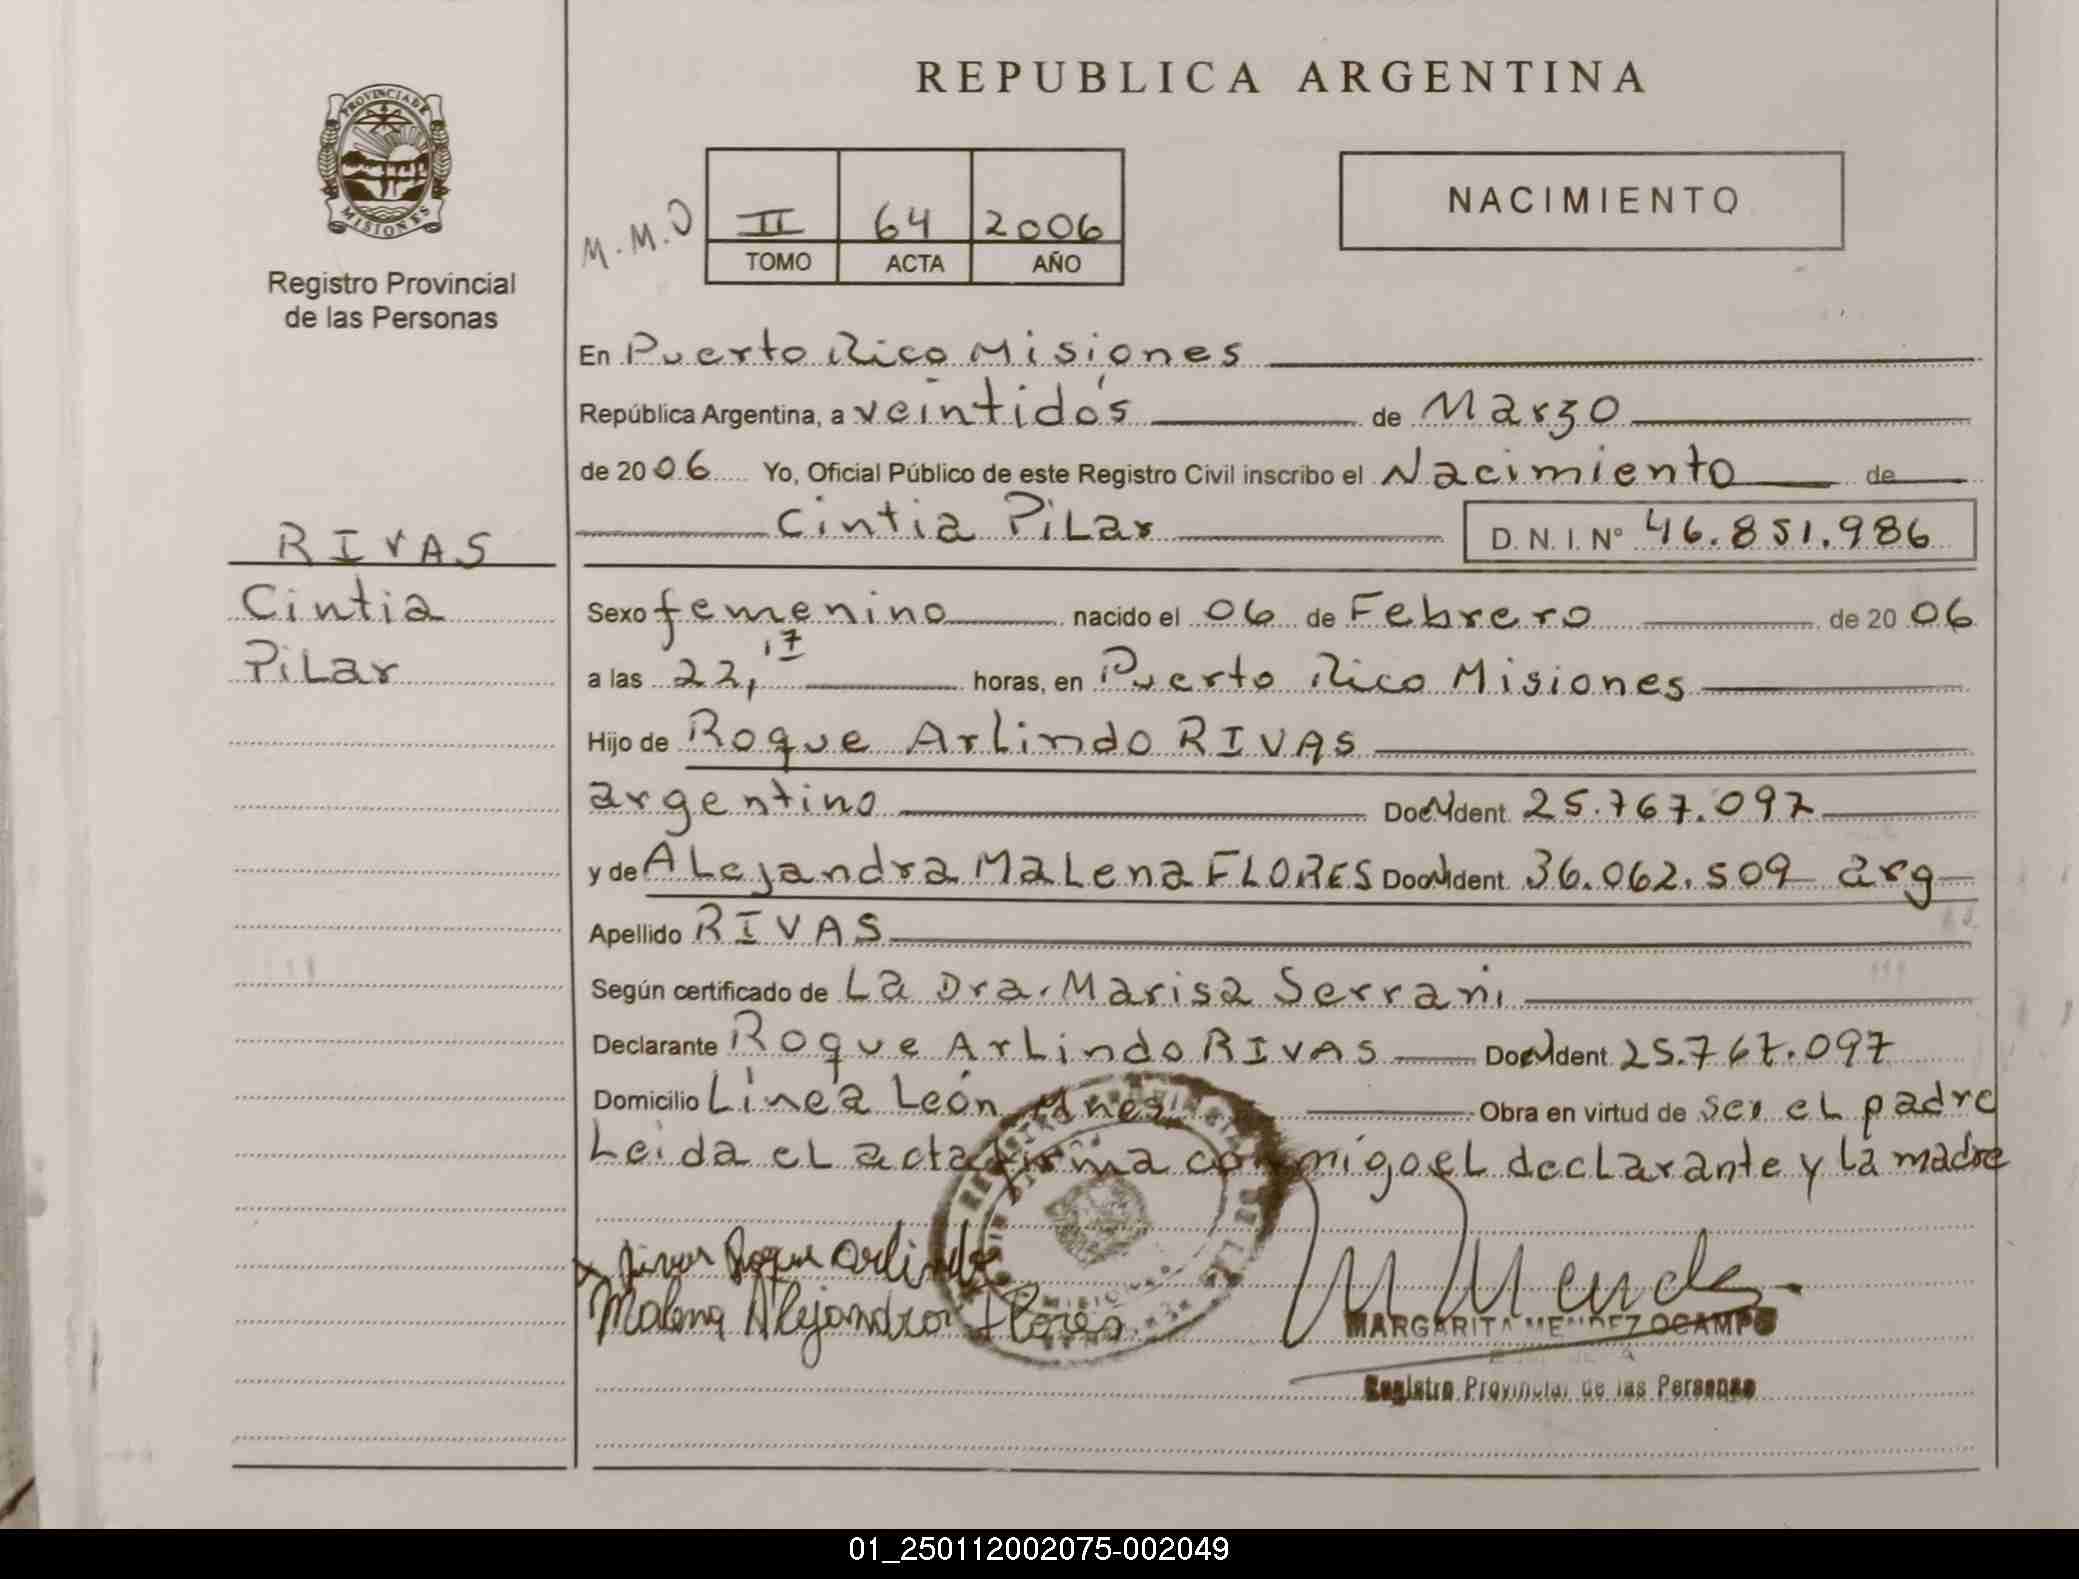 REPUBLICA ARGENTINA
PROVINCIA DE
MISIONES
Registro Provincial
de las Personas
M.M.O
II 64 2006
TOMO ACTA AÑO
NACIMIENTO
En Puerto Rico Misiones
República Argentina, a veintidós de Marzo
de 2006 Yo, Oficial Público de este Registro Civil inscribo el Nacimiento de
Cintia Pilar D.N.I. Nº 46.851.986
RIVAS
Cintia
Pilar
Sexo femenino nacido el 06 de Febrero de 2006
a las 22,17 horas, en Puerto Rico Misiones
Hijo de Roque Arlindo RIVAS
argentino Doc. Ident. 25.767.097
y de Alejandra Malena FLORES Doc. Ident. 36.062.509 arg
Apellido RIVAS
Según certificado de La Dra. Marisa Serrani
Declarante Roque Arlindo RIVAS Doc. Ident. 25.767.097
Domicilio Línea León Mnes Obra en virtud de ser el padre
Leida el acta firma conmigo el declarante y la madre
Rivas Roque Arlindo
Malena Alejandra Flores
MARGARITA MENDEZ OCAMPO
Registro Provincial de las Personas
01_250112002075-002049